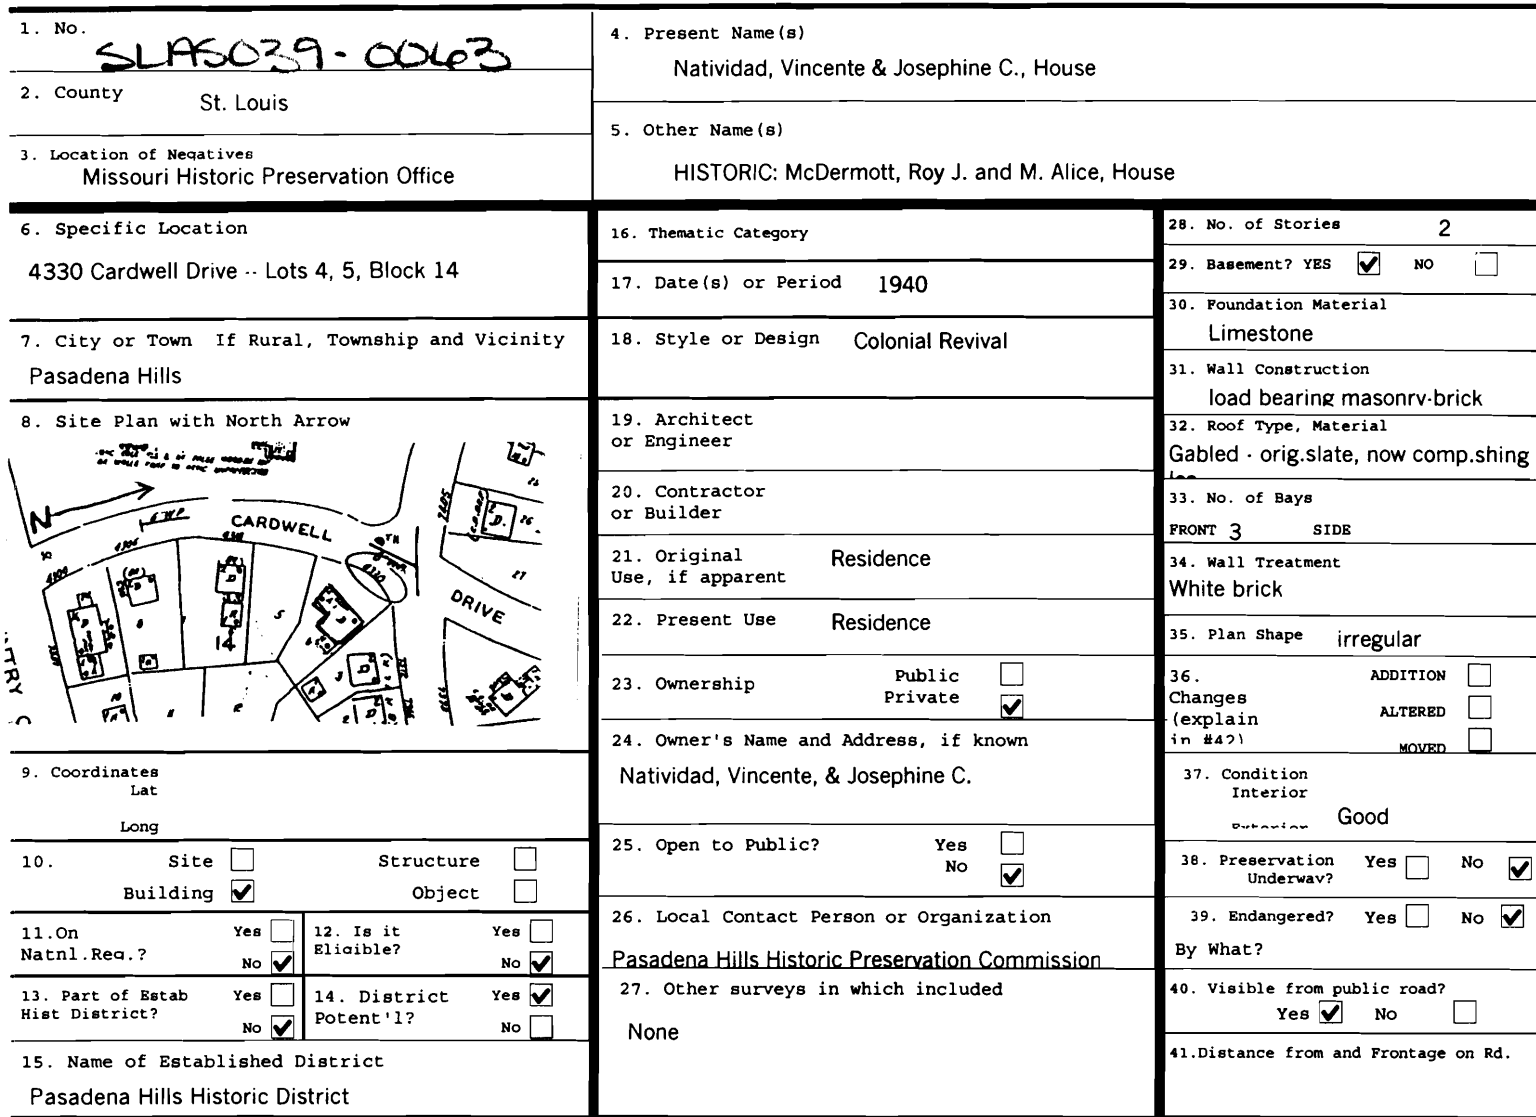 1. No. SLAS039-0063
2. County St. Louis
3. Location of Negatives
Missouri Historic Preservation Office
4. Present Name(s)
Natividad, Vincente & Josephine C., House
5. Other Name(s)
HISTORIC: McDermott, Roy J. and M. Alice, House
6. Specific Location
4330 Cardwell Drive -- Lots 4, 5, Block 14
7. City or Town If Rural, Township and Vicinity
Pasadena Hills
8. Site Plan with North Arrow
N
CARDWELL
DRIVE
14
9. Coordinates
Lat
Long
10. Site Structure
Building Object
11.On Yes
Natnl.Reg.? No
12. Is it Yes
Eligible? No
13. Part of Estab Yes
Hist District? No
14. District Yes
Potent'l? No
15. Name of Established District
Pasadena Hills Historic District
16. Thematic Category
17. Date(s) or Period 1940
18. Style or Design Colonial Revival
19. Architect
or Engineer
20. Contractor
or Builder
21. Original Residence
Use, if apparent
22. Present Use Residence
23. Ownership Public
Private
24. Owner's Name and Address, if known
Natividad, Vincente, & Josephine C.
25. Open to Public? Yes
No
26. Local Contact Person or Organization
Pasadena Hills Historic Preservation Commission
27. Other surveys in which included
None
28. No. of Stories 2
29. Basement? YES NO
30. Foundation Material
Limestone
31. Wall Construction
load bearing masonry-brick
32. Roof Type, Material
Gabled - orig.slate, now comp.shing
33. No. of Bays
FRONT 3 SIDE
34. Wall Treatment
White brick
35. Plan Shape irregular
36. ADDITION
Changes
(explain ALTERED
in #42) MOVED
37. Condition
Interior
Exterior Good
38. Preservation Yes No
Underway?
39. Endangered? Yes No
By What?
40. Visible from public road?
Yes No
41.Distance from and Frontage on Rd.